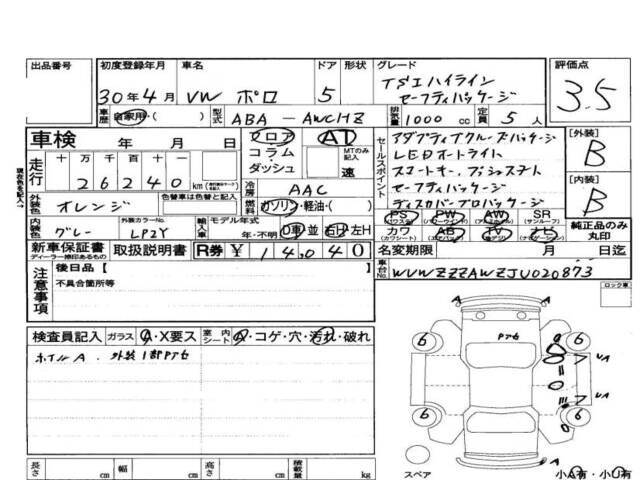 出品番号 初度登録年月 車名 ドア 形状 グレード 評価点
30年4月 VW ポロ 5 TSIハイライン
セーフティパッケージ
3.5
車歴 自家用・( ) 型式 ABA-AWCHZ 排気量 1000 cc 定員 5 人
車検 年 月 日
フロア
コラム
ダッシュ
AT
MTのみ記入
速
セールスポイント
アダプティブクルーズパッケージ
LEDオートライト
スマートキー、プッシュスタート
セーフティパッケージ
ディスカバープロパッケージ
[外装]
B
[内装]
B
走行 十 万 千 百 十 一
26240 km
現在色を記入
外装色 オレンジ 色替車は色替と記入
冷房 AAC
燃料 ガソリン・軽油・( )
PS PW AW SR
(パワステ) (パワーウィンドウ) (アルミホイール) (サンルーフ)
カワ AB TV ナビ
(カワシート) (エアバッグ) (ナビゲーション)
純正品のみ
丸印
内装色 グレー 外装カラーNo. LP2Y 輸入車 モデル年式 年・不明 D車 並 右H 左H
新車保証書 取扱説明書 R券 ¥ 14,040
ディーラー捺印あるもの
名変期限 月 日迄
車台No. WVWZZZAWZJU020873
注意事項
後日品【 】
不具合箇所等
ロック車
検査員記入 ガラス A・X要ス 室内シート A・コゲ・穴・汚れ・破れ
ホイルA、外装1部PTセ
A A
PTセ
6 6
6 6
UA
UA
A A
スペア
小A有・小U有
長さ cm 幅 cm 高さ cm 積載量 kg